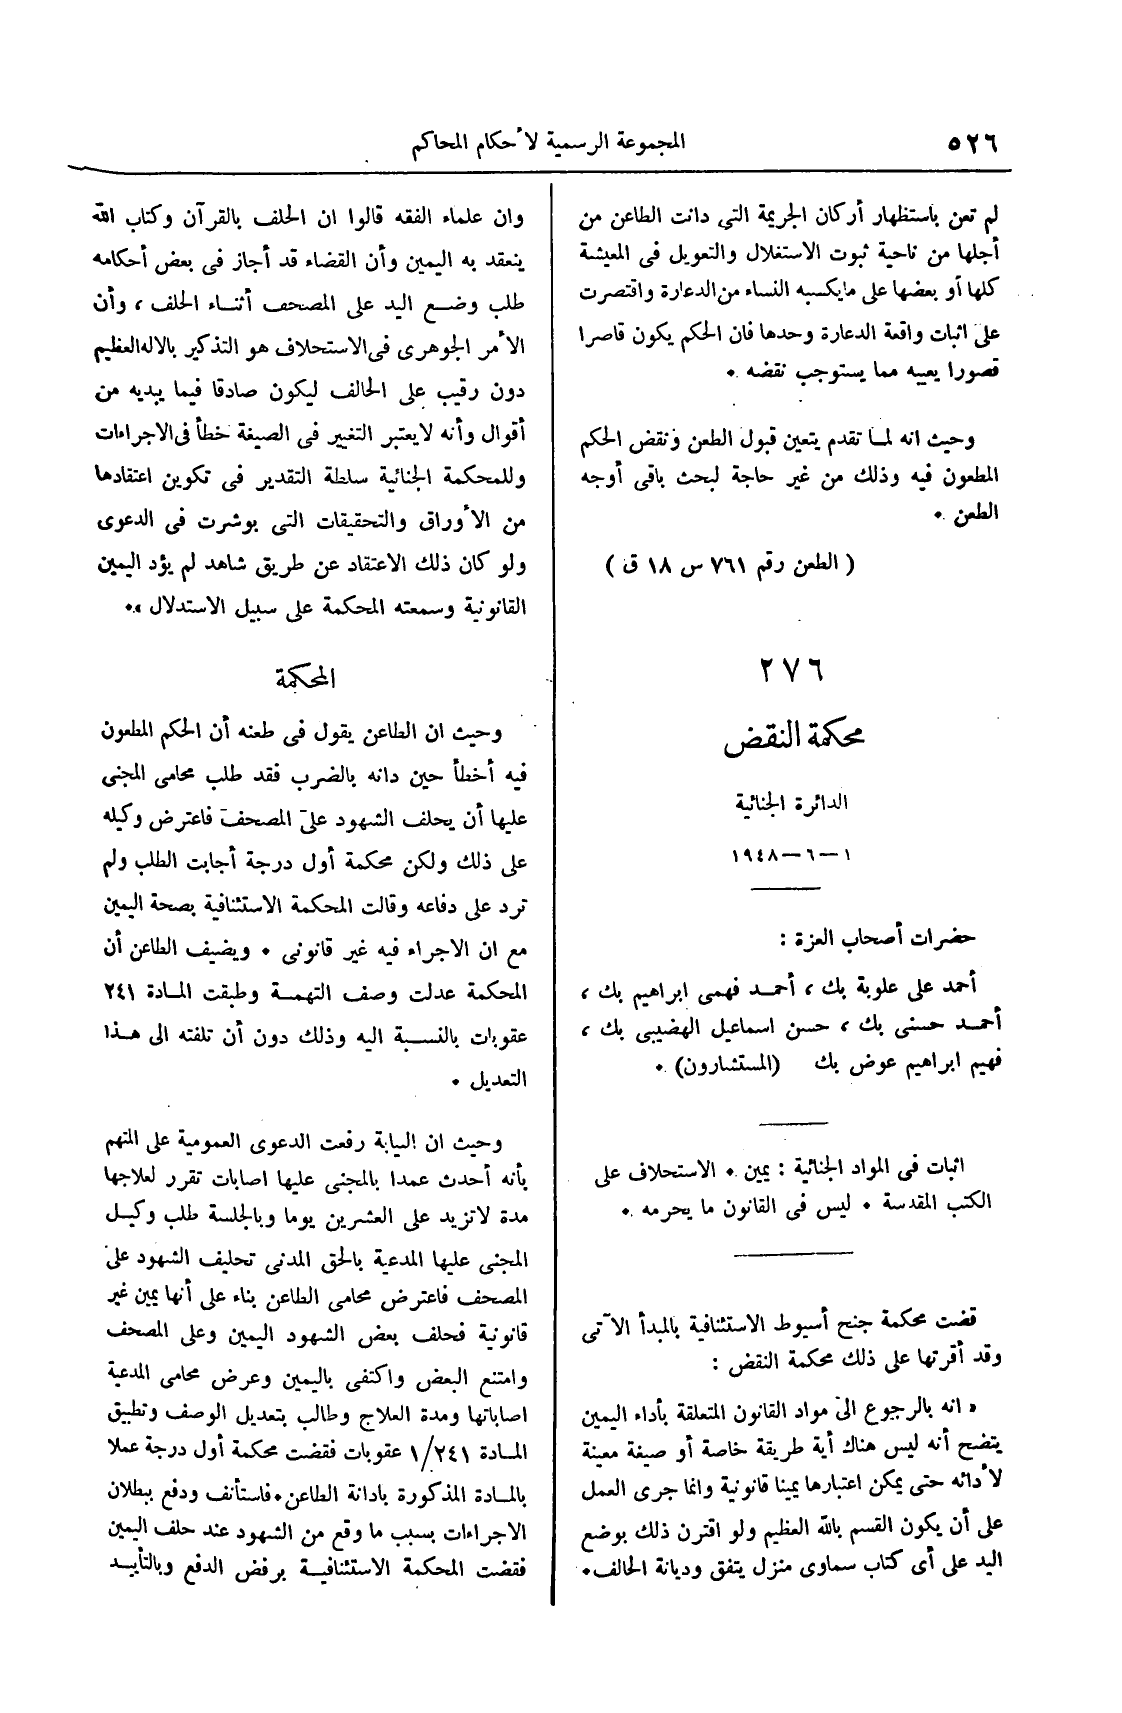 ٥٢٦
المجموعة الرسمية لأحكام المحاكم
لم تعن باستظهار أركان الجريمة التى دانت الطاعن من
أجلها من ناحية ثبوت الاستغلال والتعويل فى المعيشة
كلها أو بعضها على مايكسبه النساء من الدعارة واقتصرت
على اثبات واقعة الدعارة وحدها فان الحكم يكون قاصرا
قصورا يعيبه مما يستوجب نقضه .
وحيث انه لما تقدم يتعين قبول الطعن ونقض الحكم
المطعون فيه وذلك من غير حاجة لبحث باقى أوجه
الطعن .
( الطعن رقم ٧٦١ س ١٨ ق )
٢٧٦
محكمة النقض
الدائرة الجنائية
١ – ٦ – ١٩٤٨
حضرات أصحاب العزة :
أحمد على علوبة بك ، أحمد فهمى ابراهيم بك ،
أحمد حسنى بك ، حسن اسماعيل الهضيبى بك ،
فهيم ابراهيم عوض بك (المستشارون) .
اثبات فى المواد الجنائية : يمين . الاستحلاف على
الكتب المقدسة . ليس فى القانون ما يحرمه .
قضت محكمة جنح أسيوط الاستئنافية بالمبدأ الآتى
وقد أقرتها على ذلك محكمة النقض :
« انه بالرجوع الى مواد القانون المتعلقة بأداء اليمين
يتضح أنه ليس هناك أية طريقة خاصة أو صيغة معينة
لأدائه حتى يمكن اعتبارها يمينا قانونية وانما جرى العمل
على أن يكون القسم بالله العظيم ولو اقترن ذلك بوضع
اليد على أى كتاب سماوى منزل يتفق وديانة الحالف.
وان علماء الفقه قالوا ان الحلف بالقرآن وكتاب الله
ينعقد به اليمين وأن القضاء قد أجاز فى بعض أحكامه
طلب وضع اليد على المصحف أثناء الحلف ، وأن
الأمر الجوهرى فى الاستحلاف هو التذكير بالاله العظيم
دون رقيب على الحالف ليكون صادقا فيما يبديه من
أقوال وأنه لا يعتبر التغيير فى الصيغة خطأ فى الاجراءات
وللمحكمة الجنائية سلطة التقدير فى تكوين اعتقادها
من الأوراق والتحقيقات التى بوشرت فى الدعوى
ولو كان ذلك الاعتقاد عن طريق شاهد لم يؤد اليمين
القانونية وسمعته المحكمة على سبيل الاستدلال ».
المحكمة
وحيث ان الطاعن يقول فى طعنه أن الحكم المطعون
فيه أخطأ حين دانه بالضرب فقد طلب محامى المجنى
عليها أن يحلف الشهود على المصحف فاعترض وكيله
على ذلك ولكن محكمة أول درجة أجابت الطلب ولم
ترد على دفاعه وقالت المحكمة الاستئنافية بصحة اليمين
مع ان الاجراء فيه غير قانونى . ويضيف الطاعن أن
المحكمة عدلت وصف التهمة وطبقت المادة ٢٤١
عقوبات بالنسبة اليه وذلك دون أن تلفته الى هذا
التعديل .
وحيث ان النيابة رفعت الدعوى العمومية على المتهم
بأنه أحدث عمدا بالمجنى عليها اصابات تقرر لعلاجها
مدة لاتزيد على العشرين يوما وبالجلسة طلب وكيل
المجنى عليها المدعية بالحق المدنى تحليف الشهود على
المصحف فاعترض محامى الطاعن بناء على أنها يمين غير
قانونية فحلف بعض الشهود اليمين وعلى المصحف
وامتنع البعض واكتفى باليمين وعرض محامى المدعية
اصاباتها ومدة العلاج وطالب بتعديل الوصف وتطبيق
المادة ٢٤١/١ عقوبات فقضت محكمة أول درجة عملا
بالمادة المذكورة بادانة الطاعن.فاستأنف ودفع ببطلان
الاجراءات بسبب ما وقع من الشهود عند حلف اليمين
فقضت المحكمة الاستئنافية برفض الدفع وبالتأييد